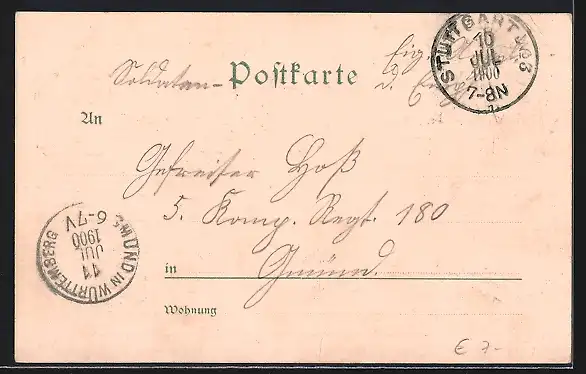 Soldaten- Postkarte
STUTTGART No 3
10
JUL
1900
7-8N
An
Gefreiter Hoß
5. Komp. Regt. 180
in Gmünd.
Wohnung
GMÜND IN WÜRTTEMBERG
11
JUL
1900
6-7V
E 7-